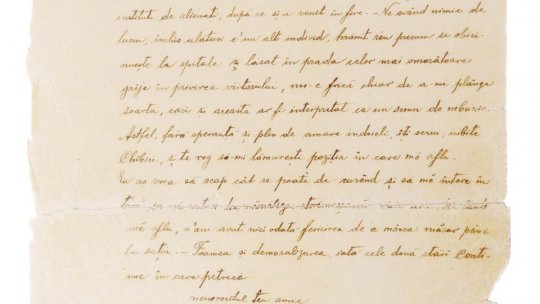 institut de alienați, după ce și-a venit în fire. — Ne având nimic de
lucru, închis alături c'un alt individ, hrănit rău precum se obici-
nuește la spitale și lăsat în prada celor mai omorâtoare
grije în privirea viitorului, mi-e frică chiar de a-mi plânge
soarta, căci și aceasta ar fi interpretat ca un semn de nebunie.
Astfel, fără speranță și plin de amare îndoieli, îți scriu, iubite
Chibici, și te rog să-mi lămurești poziția în care mă aflu.
Eu aș vrea să scap cât se poate de curând și să mă întorc în
țară
mă aflu, n'am avut niciodată fericirea de a mânca măcar pâne
la sațiu. — Foamea și demoralizarea, iată cele două stări conti-
nue în care petrece
nenorocitul tău amic